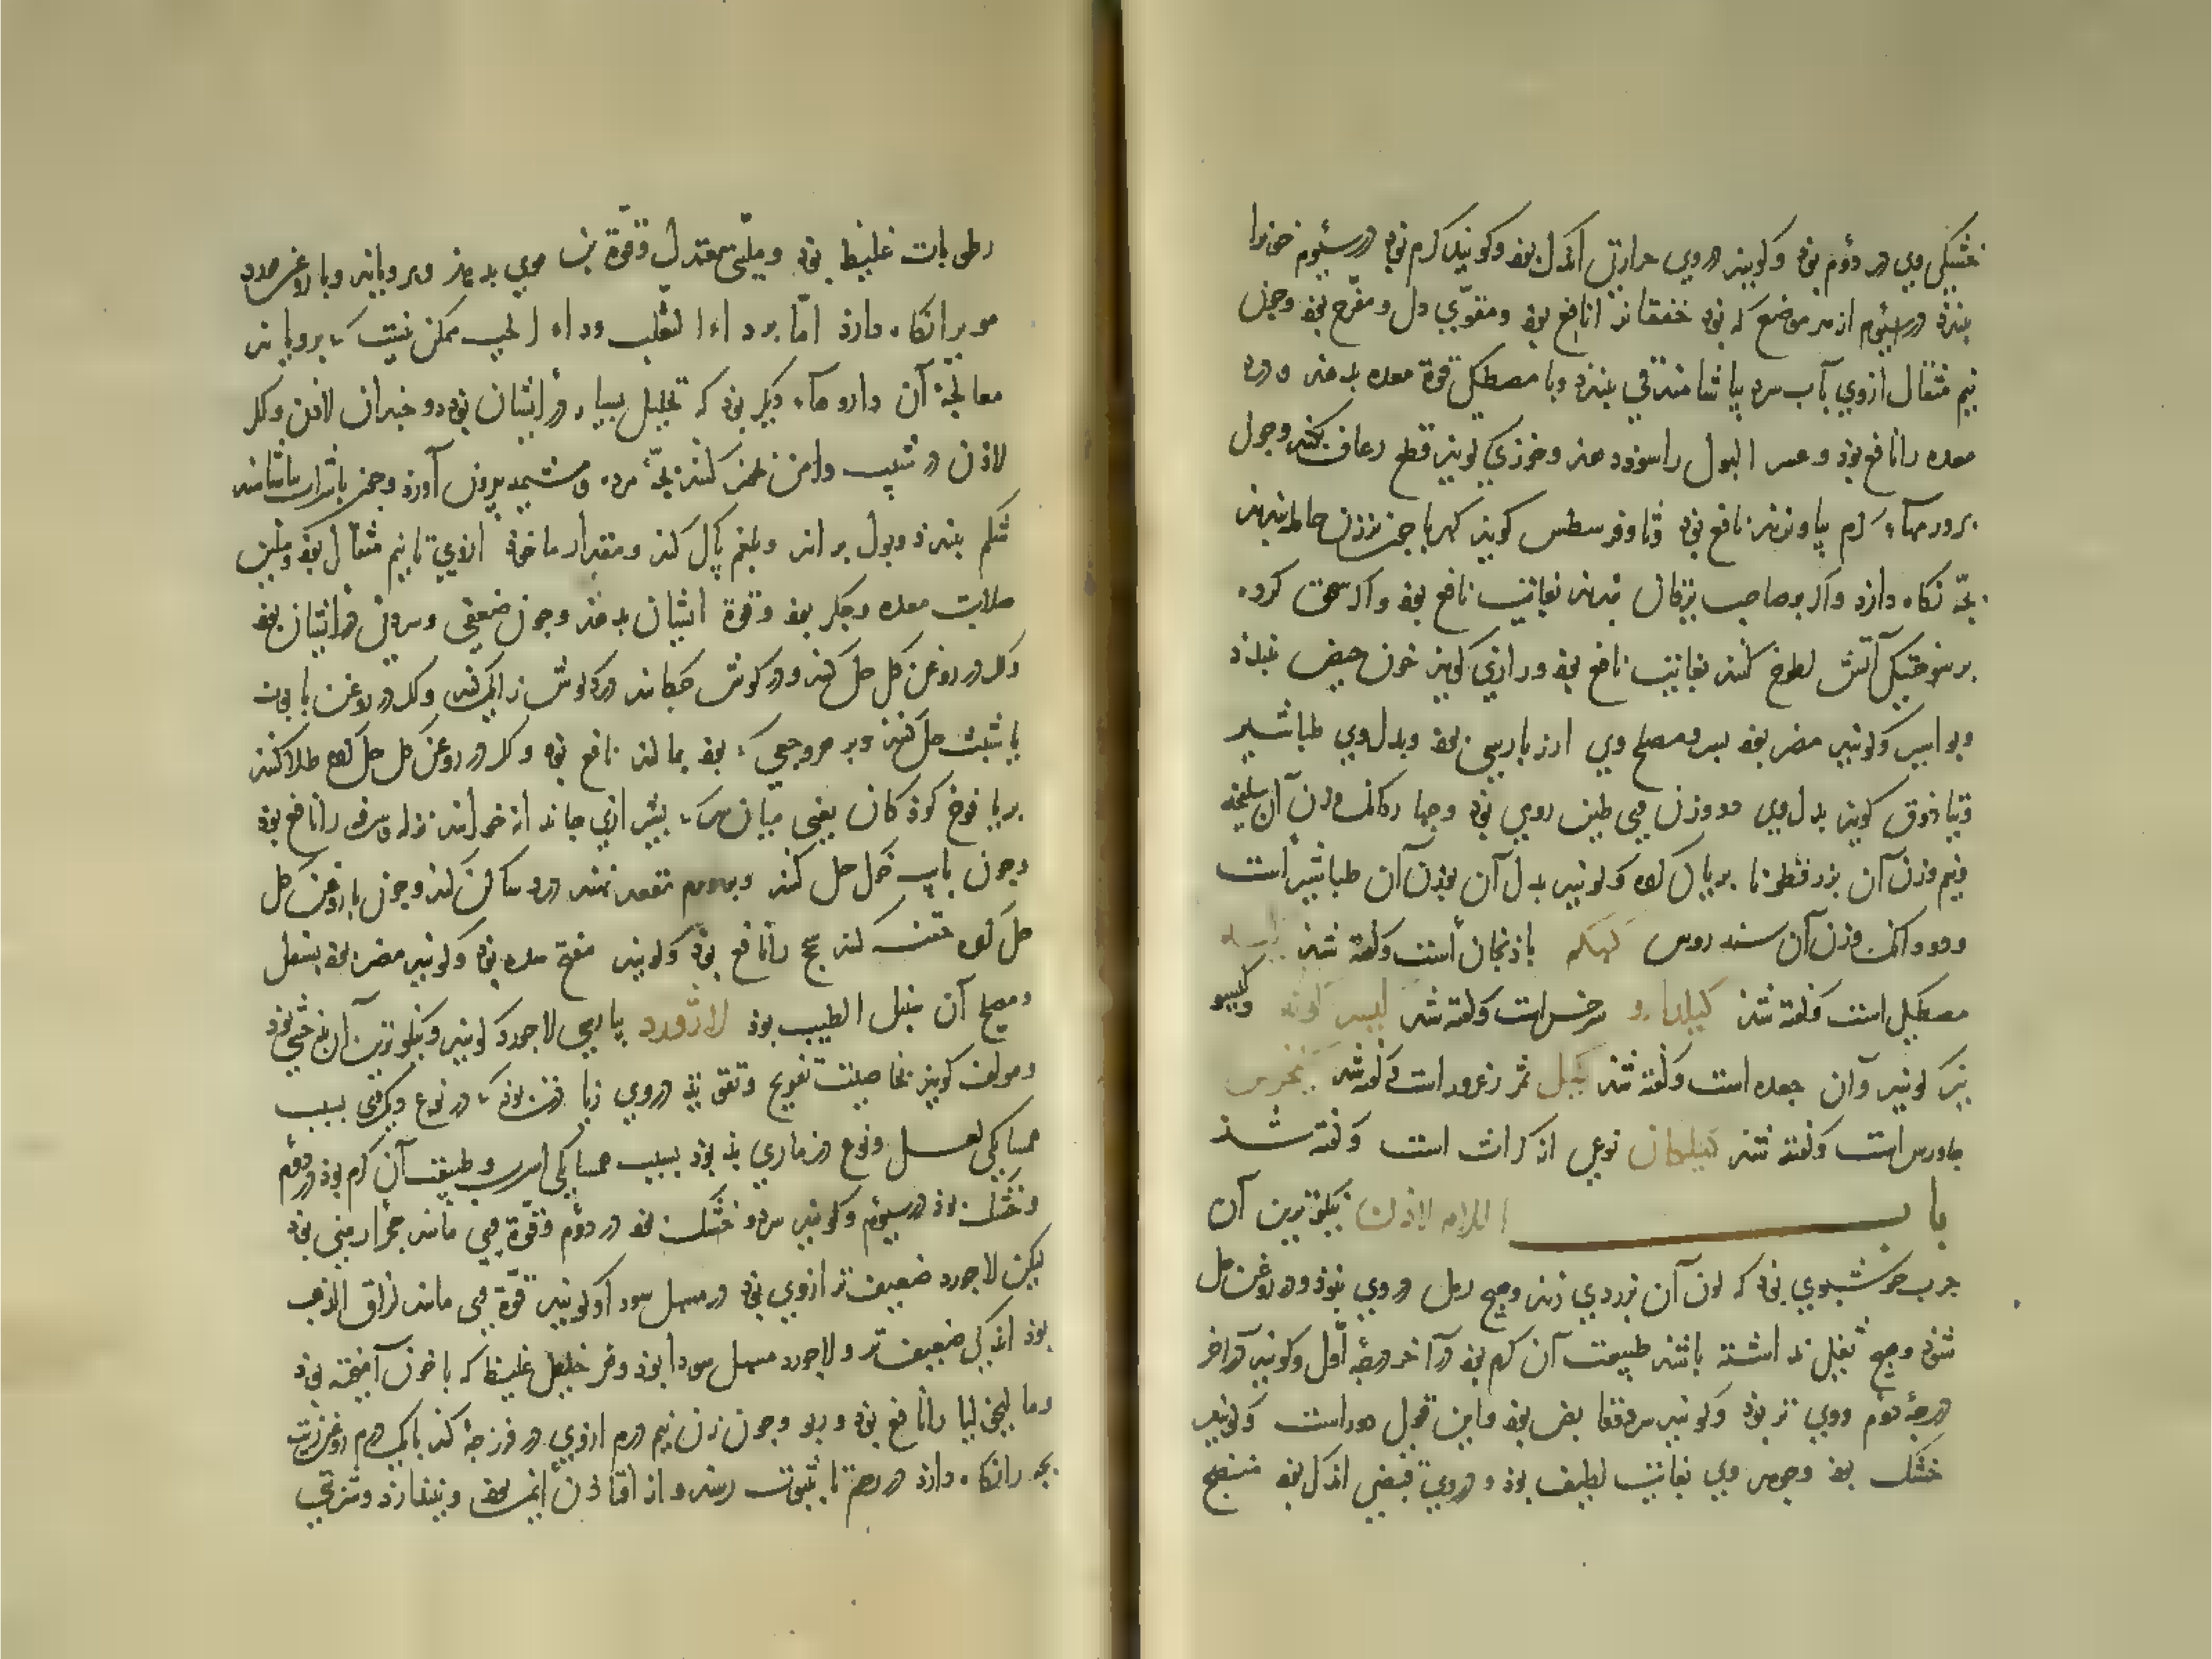 خشکی وی در دوم بود و کویند در وی حرارتی اندک بود و کویند کرم بود در سیوم خون را
ببندد در سیوم از هر موضع که بود خفقان را نافع بود و مقوی دل و مفرح بود و چون
نیم مثقال ازوی بآب سرد بیاشامند قی ببندد و با مصطکی قوة معده بدهد و درد
معده را نافع بود و عسر البول را سود دهد و خوزی کویند قطع رعاف بکند و چون
بر ورمهاء کرم بیاویزند نافع بود و ثاوفرسطس کویند کهربا چون بر زن حامله بندند
بچه نکاه دارد و اکر بر صاحب یرقان بندند بغایت نافع بود و اکر سحق کرده
بر سوختکی آتش لطوخ کنند بغایت نافع بود و رازی کوید خون حیض ببندد
و بواسیر و کویند مضر بود بسر و مصلح وی بود و بدل وی طباشیر
کویند بدل وی دو وزن وی طین رومی بود و چهار دانک وزن آن سلیخه
و نیم وزن آن بزرقطونا بریان کرده و کویند بدل آن بوزن آن طباشیر است
و دو دانک وزن آن سندروس کهکم باذنجان است و کفته شد
مصطکی است و کفته شد کیلدارو سرخس است و کفته شد
کویند و آن جعده است و کفته شد ثمر زعرور است و کفته شد
جاورس است و کفته شد کیلکان نوعی از کراث است و کفته شد
باب اللام لاذن نیکوترین آن
چرب خوشبوی بود که لون آن بزردی زند و هیچ رمل در وی نبود و در روغن حل
شود و هیچ ثفل نداشته باشد طبیعت آن کرم بود در آخر درجهٔ اول و کویند در آخر
درجهٔ دوم و وی تر بود و کویند سرد و قابض بود و این قول دور است و کویند
خشک بود و جوهر وی بغایت لطیف بود و در وی قبضی اندک بود منضج
رطوبات غلیظ بود و ملین معتدل و قوة بن موی بدهد و برویاند و با روغن مورد
موی را نکاه دارد اما بر داء الثعلب و داء الحیه ممکن نیست که برویاند
معالجهٔ آن داروهاء دیکر بود که تحلیل بسیار در ایشان بود و خبران لاذن و اکر
لاذن در شیب دامن زن بخور کنند بچهٔ مرده و مشیمه بیرون آورد و چون با شراب بیاشامند
شکم ببندد و بول براند و بلغم پاک کند و مقدار ماخوذ ازوی تا نیم مثقال بود و ملین
صلابت معده و جکر بود و قوة ایشان بدهد و چون ضعیفی و سردی در ایشان بود
و اکر در روغن کل حل کنند و در کوش چکانند درد کوش زایل کند و اکر در روغن بابونه
یا شبت حل کنند و بر هر وجعی که بود بمالند نافع بود و اکر در روغن کل حل کرده طلا کنند
بر یافوخ کوذکان یعنی میان سر نزله و سرفه را نافع بود
و چون بآب حل کنند در مقعد نهند درد ساکن کند و چون با روغن کل
حل کرده حقنه کنند سحج را نافع بود و کویند مفتح سده بود و کویند مضر بود بسفل
و مصلح آن سنبل الطیب بود لازورد بپارسی لاجورد کویند و نیکوترین آن بدخشی بود
و مولف کوید خاصیت تفریح و تقویت در وی زیادت بود که در نوع دیکر بسبب
همسایکی لعل و نوع دزماری بد بود بسبب همسایکی سرب و طبیعت آن کرم بود در دوم
و خشک بود در سیوم و کویند سرد و خشک بود در دوم و قوة وی مانند حجر ارمنی بود
لیکن لاجورد ضعیف‌تر ازوی بود در مسهل سودا و کویند قوة وی مانند لزاق الذهب
بود اندکی ضعیف‌تر و لاجورد مسهل سودا بود و هر خلطی غلیظ که با خون آمیخته بود
و مالیخولیا را نافع بود و ربو و چون زن نیم درم ازوی در فرزجه کند با یک درم روغن زیت
بچه را نکاه دارد در رحم تا بثبوت رسد و از افتادن ایمن بود و نیندازد